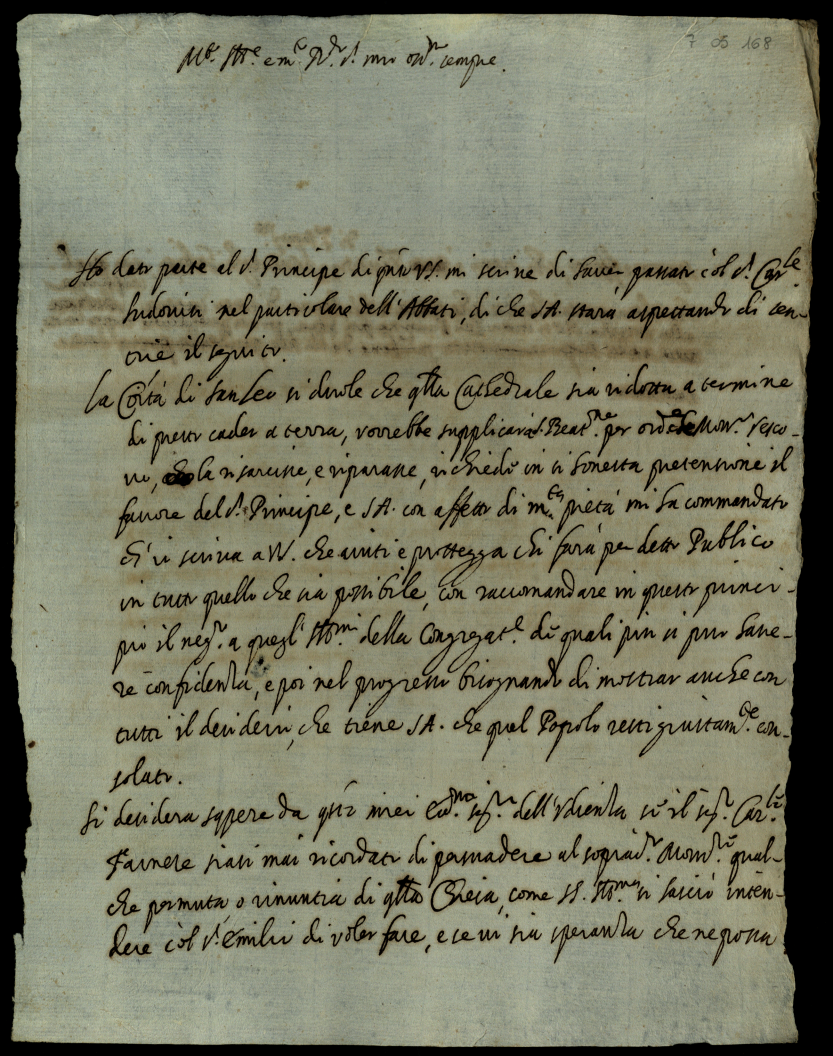 7 05 168
Mto. Illre. e mto. Rdo. Sr. mio ossmo. sempre.
Ho dato parte al Sr. Principe di qto VS. mi scrive di haver passato col Sr. Carle
Ludovisi nel particolare dell'Abbati, di che SA. stará aspettando di sen-
tire il seguito.
La Cōítá di San Leo si duole che qlla Cathedrale sia ridotta a termine
di presto cader a terra, vorrebbe supplicar S. Beatne. per ordine Monsr. Vesco-
vo, la risarcisse, e riparasse, richiede in si honesta pretensione il
favore del Sr. Principe, e SA. con affetto di mta. pietá mi ha commandato
ch'io scriva a VS. che aiuti e protegga chi fará per detto Publico
in tutto quello che sia possibile, con raccomandare in questo princi-
pio il nego. a quegl'Illmi. della Congregate. de quali piu si puo have-
re confidenza, e poi nel progresso bisognando di mostrar anche con
tutti il desiderio, che tiene SA. che quel Popolo resti giustamte. con-
solato.
Si desidera sapere da qsti miei sigri. dell'Udienza se il sigr. Carle.
Farnese siasi mai ricordato di persuadere al sopradto. Monsre. qual-
che permuta o rinuntia di qlla Chiesa, come SS. Illma. si lasció inten-
dere col Sr. Emilio di voler fare, e se vi sia speranza che ne possa